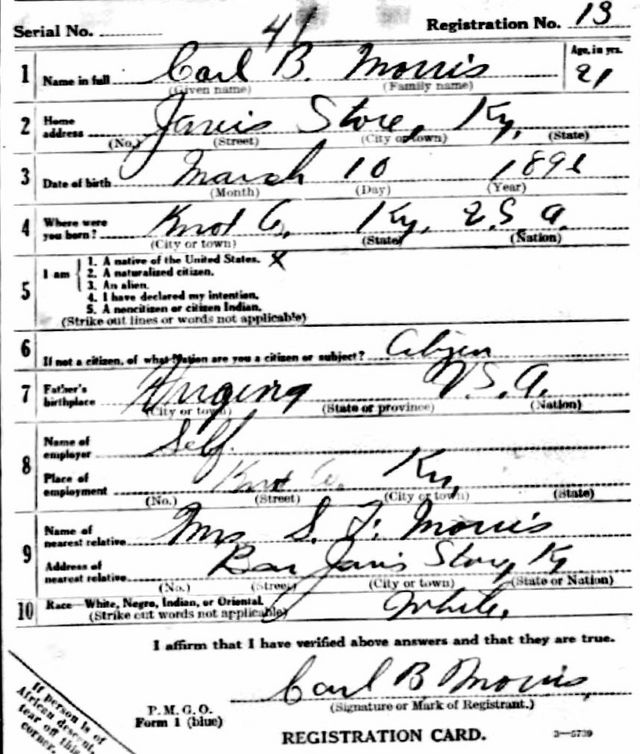 Serial No. 41 Registration No. 13
1 Name in full Carl B. Morris Age, in yrs. 21
(Given name) (Family name)
2 Home address Jarvis Store, Ky,
(No.) (Street) (City or town) (State)
3 Date of birth March 10 189
(Month) (Day) (Year)
4 Where were you born? Knot Co, Ky, U.S.A.
(City or town) (State) (Nation)
5 I am
1. A native of the United States. X
2. A naturalized citizen.
3. An alien.
4. I have declared my intention.
5. A noncitizen or citizen Indian.
(Strike out lines or words not applicable)
6 If not a citizen, of what Nation are you a citizen or subject? Citizen
7 Father's birthplace U.S.A.
(City or town) (State or province) (Nation)
8 Name of employer Self.
Place of employment Knot Co. Ky,
(No.) (Street) (City or town) (State)
9 Name of nearest relative Mrs S. F. Morris
Address of nearest relative Jarvis Store, Ky
(No.) (Street) (City or town) (State or Nation)
10 Race—White, Negro, Indian, or Oriental. White.
(Strike out words not applicable)
I affirm that I have verified above answers and that they are true.
Carl B Morris,
P.M.G.O. (Signature or Mark of Registrant.)
Form 1 (blue) REGISTRATION CARD. 3—5739
If person is of
African descent,
tear off this
corner.